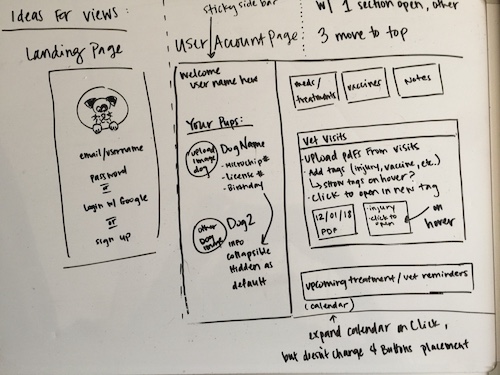 Ideas for views:
Landing Page
email/username
password
or
login w/ Google
or
sign up
sticky side bar
User Account Page:
w/ 1 section open, other
3 move to top
Welcome
user name here
Your Pups:
upload
image
dog
Dog Name
- Microchip #
- License #
- Birthday
other
Dog
image
Dog2
info
collapsible
Hidden as
default
meds/
treatments
vaccines
Notes
Vet Visits
- Upload pdfs from visits
- Add tags (injury, vaccine, etc.)
↳ show tags on hover?
- Click to open in new tag
12/01/18
PDF
- injury
- click to
open
on
hover
upcoming treatment / vet reminders
(calendar)
expand calendar on click,
but doesn't change 4 Buttons placement